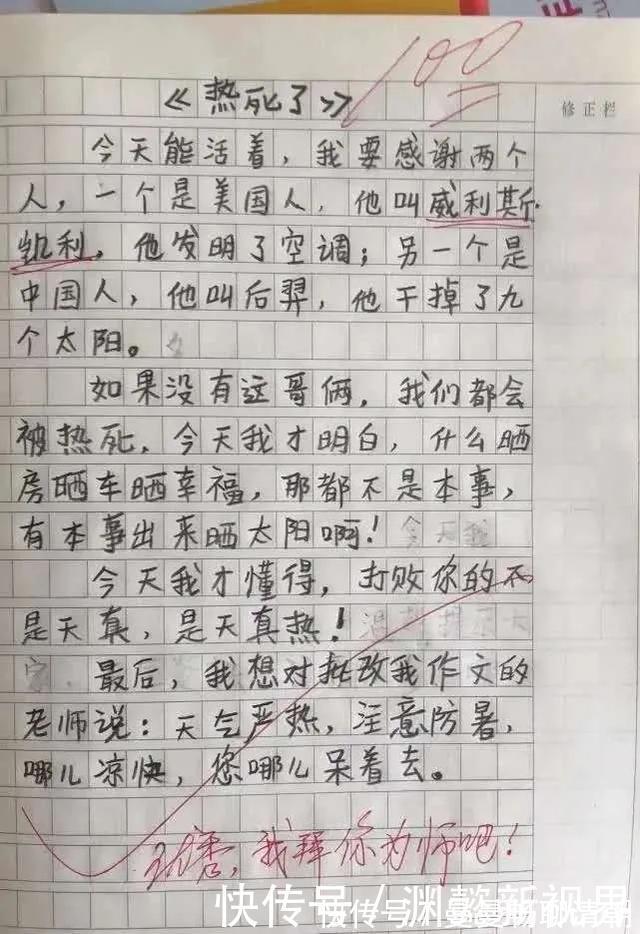 100
《热死了》
修正栏
今天能活着，我要感谢两个
人，一个是美国人，他叫威利斯·
凯利，他发明了空调；另一个是
中国人，他叫后羿，他干掉了九
个太阳。
如果没有这哥俩，我们都会
被热死，今天我才明白，什么晒
房晒车晒幸福，那都不是本事，
有本事出来晒太阳啊！
今天我才懂得，打败你的不
是天真，是天真热！
最后，我想对批改我作文的
老师说：天气严热，注意防暑，
哪儿凉快，您哪儿呆着去。
我拜你为师吧！
快传号／渊懿新视界